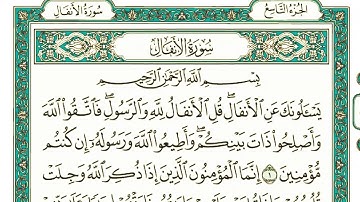 الجزء التاسع
سورة الأنفال
سُورَةُ الأَنفَالِ
بِسْمِ اللَّهِ الرَّحْمَٰنِ الرَّحِيمِ
يَسْـَٔلُونَكَ عَنِ ٱلْأَنفَالِ ۖ قُلِ ٱلْأَنفَالُ لِلَّهِ وَٱلرَّسُولِ ۖ فَٱتَّقُوا۟ ٱللَّهَ
وَأَصْلِحُوا۟ ذَاتَ بَيْنِكُمْ ۖ وَأَطِيعُوا۟ ٱللَّهَ وَرَسُولَهُۥٓ إِن كُنتُم
مُّؤْمِنِينَ ١ إِنَّمَا ٱلْمُؤْمِنُونَ ٱلَّذِينَ إِذَا ذُكِرَ ٱللَّهُ وَجِلَتْ